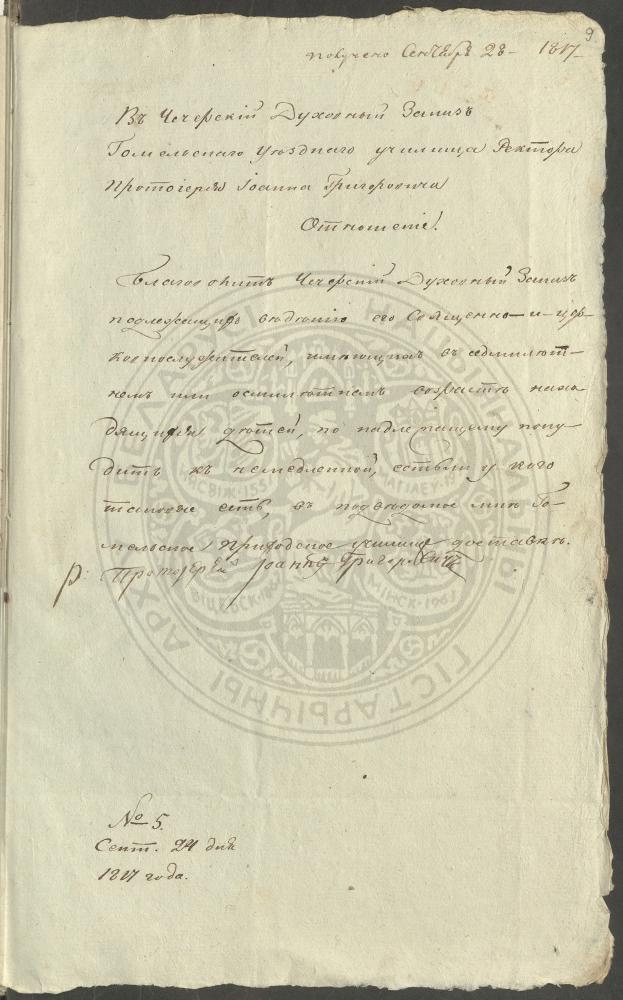 9
получено Сентебрѣ 28 – 1817
Въ Чечерскій Духовный Замизъ
Гомельскаго уѣзднаго училища Ректора
Протоіерея Іоанна Григоровича
Отношеніе.
Благоволитъ Чечерскій Духовный Замизъ
подлежащихъ вѣдѣнію его Священно – и цер-
ковнослужителей, имѣющихъ въ седмилѣт-
немъ или осмилѣтнемъ возрастѣ нахо-
дящихся дѣтей, по надлежащему пону-
дить къ немедленной, естьли у кого
таковые есть, въ подвѣдомое мнѣ Го-
мельское Приходское училище доставкѣ.
Р: Протоіерей Іоаннъ Григоровичъ
№ 5.
Сент. 24 дня
1817 года.